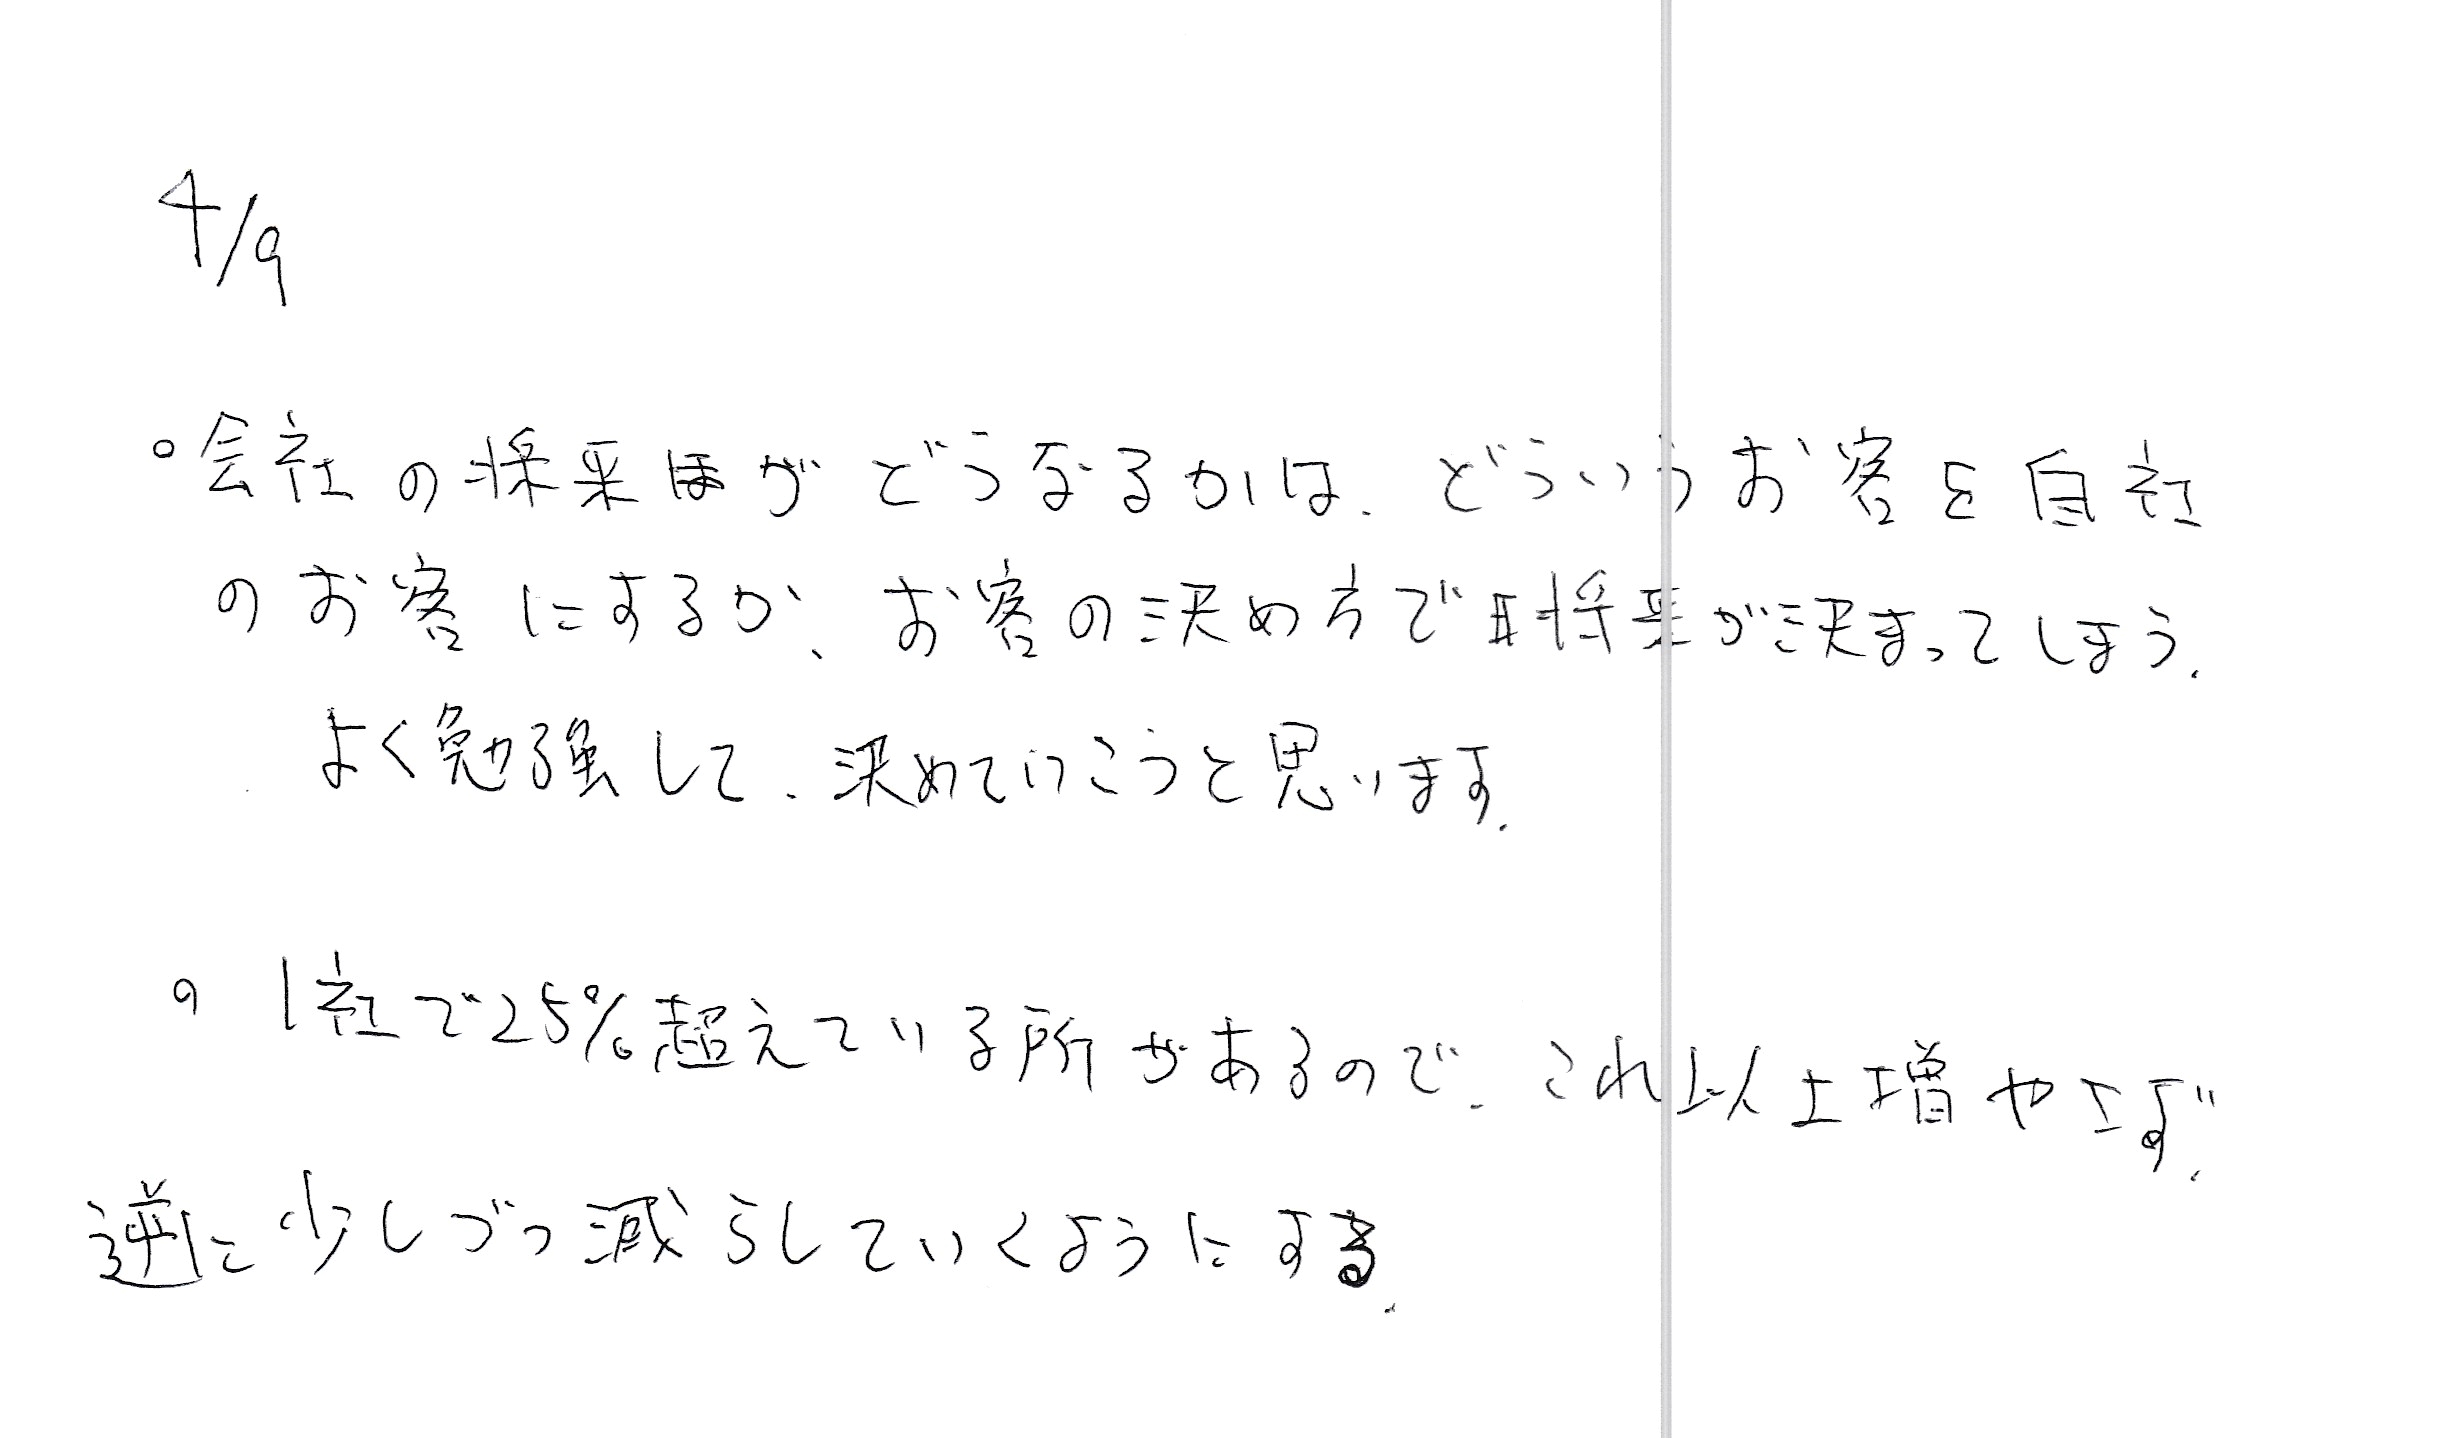 4/9
。会社の将来がどうなるかは、どういうお客を自社
のお客にするか、お客の決め方で将来が決まってしまう。
よく勉強して、決めていこうと思います。
。1社で25%超えている所があるので、これ以上増やさず、
逆に少しづつ減らしていくようにする。